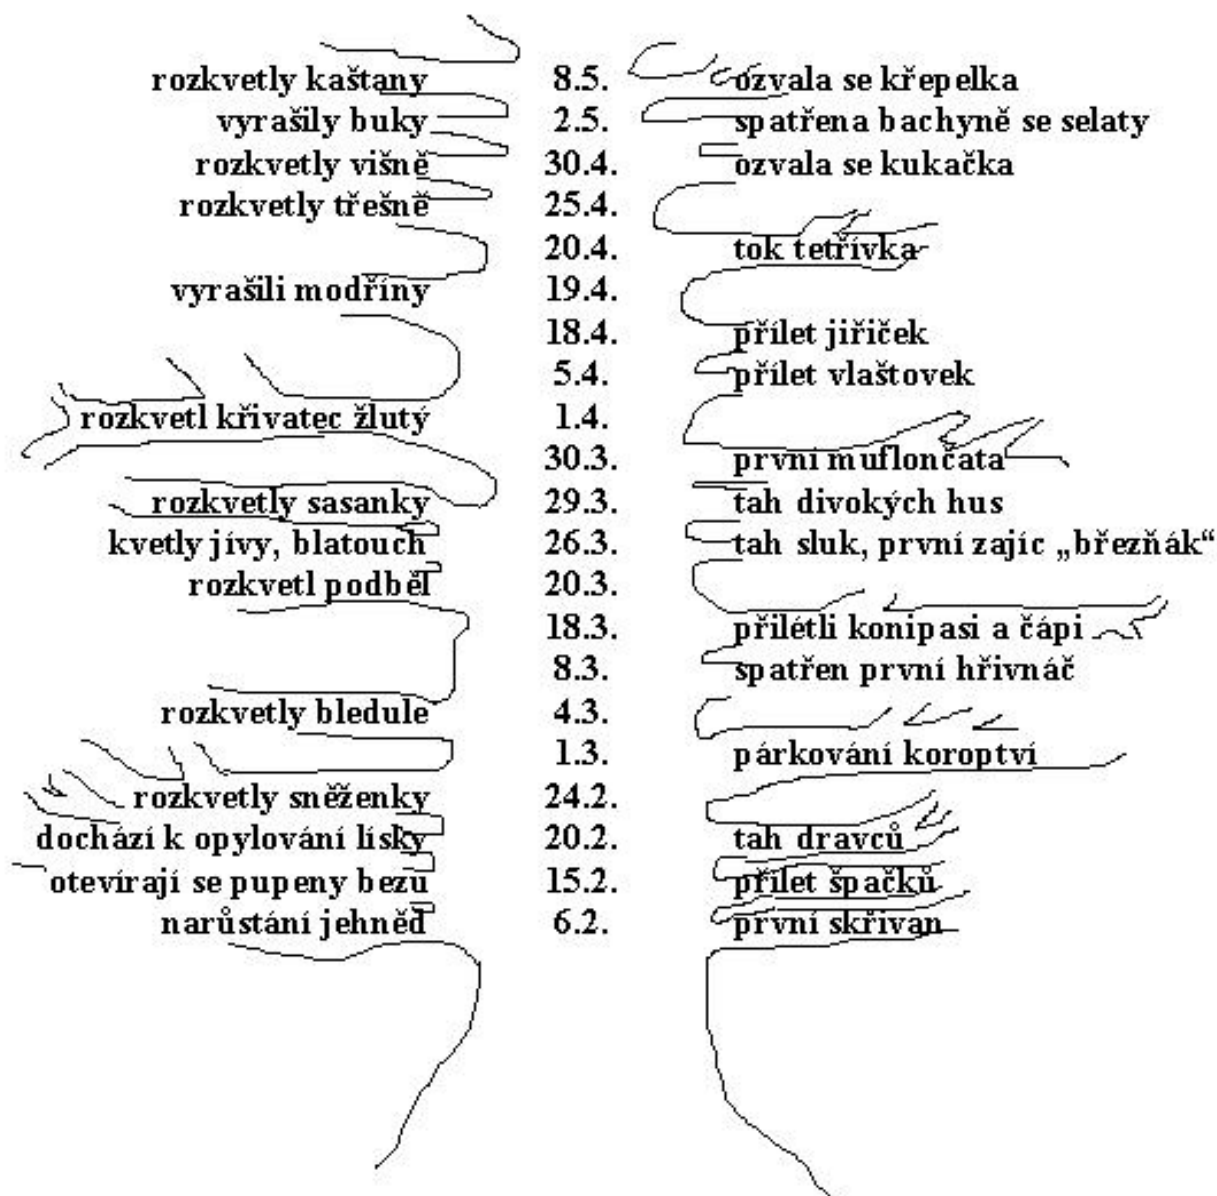 rozkvetly kaštany 8.5. ozvala se křepelka
vyrašily buky 2.5. spatřena bachyně se selaty
rozkvetly višně 30.4. ozvala se kukačka
rozkvetly třešně 25.4.
20.4. tok tetřívka
vyrašili modříny 19.4.
18.4. přílet jiřiček
5.4. přílet vlaštovek
rozkvetl křivatec žlutý 1.4.
30.3. první muflončata
rozkvetly sasanky 29.3. tah divokých hus
kvetly jívy, blatouch 26.3. tah sluk, první zajíc „březňák“
rozkvetl podběl 20.3.
18.3. přilétli konipasi a čápi
8.3. spatřen první hřivnáč
rozkvetly bledule 4.3.
1.3. párkování koroptví
rozkvetly sněženky 24.2.
dochází k opylování lísky 20.2. tah dravců
otevírají se pupeny bezu 15.2. přílet špačků
narůstání jehněd 6.2. první skřivan